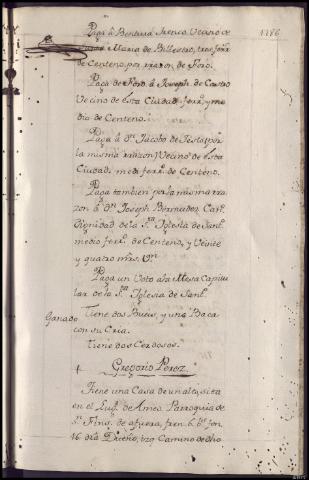 1786
Paga á Bentura Trenco Vecino de
Maria de Ballestro, tres ferr.s
de Centeno, por rrazon de Foro.
Paga de Foro á Joseph de Castro
Vecino de esta Ciudad ferr.o y me
dio de Centeno.
Paga á D.n Jacobo de por
la misma rrazon, Vecino de esta
Ciudad, med.o ferr.o de Centeno.
Paga tambien por la misma rra
zon á D.n Joseph Bermudez Car.l
Dignidad de la S.ta Iglesia de Sant.o
medio ferr.o de Centeno, y Veinte
y quatro mrs. V.n
Paga un Voto a la Mesa Capitu
lar de la S.ta Iglesia de Sant.o
Ganado
Tiene dos Bueis, y una Baca
con su Cria.
Tiene dos Cerdosos.
+ Gregorio Perez
Tiene una Casa de un alto, sita
en el Lug.r de Ameo Parroquia de
S.n Fins, de afuera, fren. 6. b.s fon.
16 dra. Dueño, izq. Camino de dho